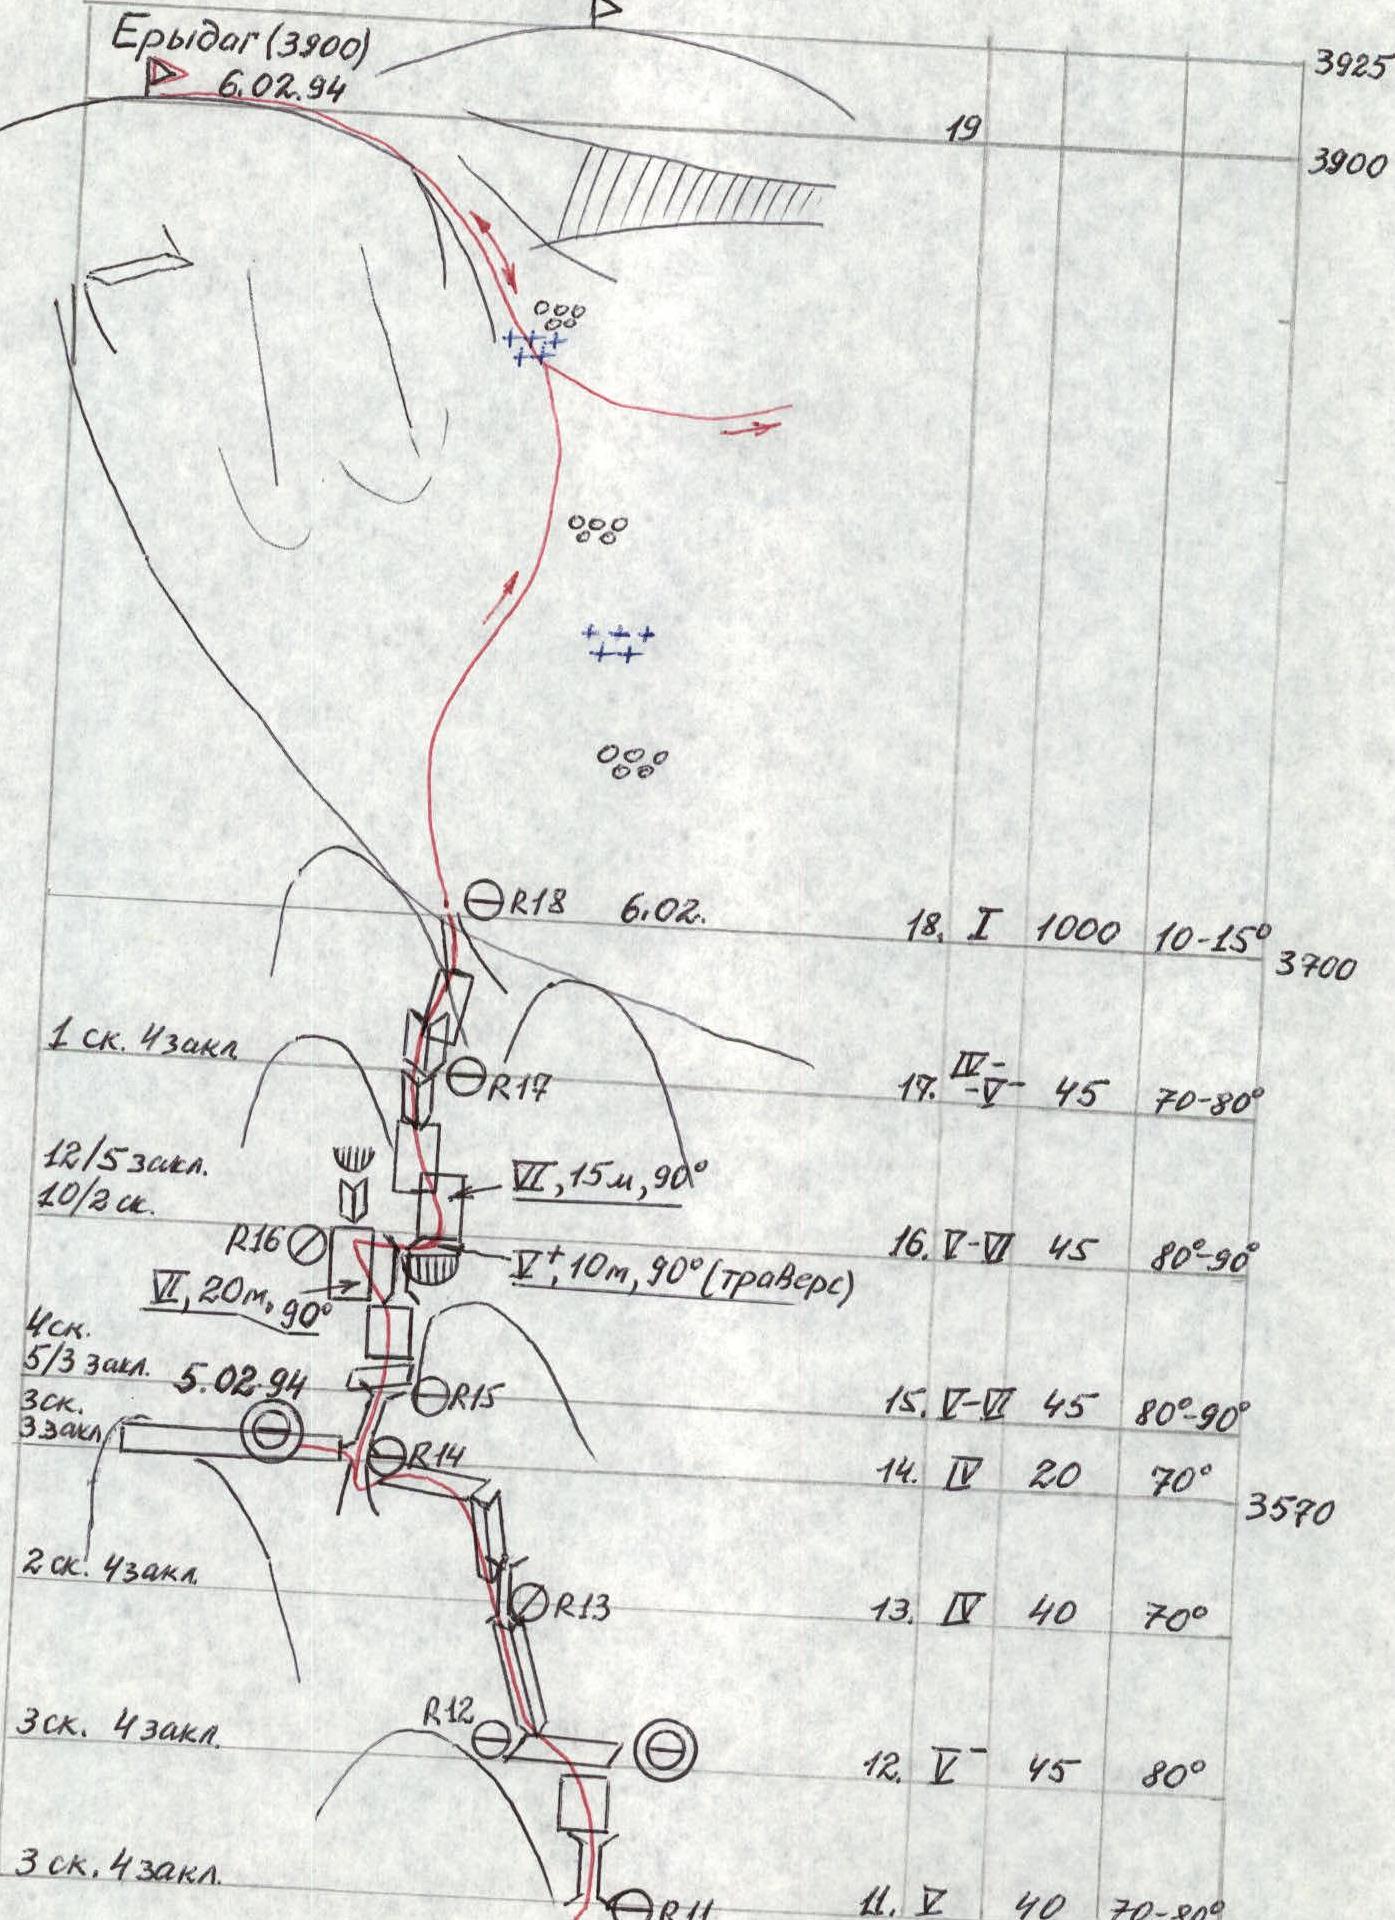 Ерыдаг (3900)
6.02.94
3925
19
3900
R18 6.02.
18. I 1000 10-15°
3700
1 ск. 4 закл.
R17
17. IV--V- 45 70-80°
12/5 закл.
10/2 ск.
VI, 15м, 90°
R16
16. V-VI 45 80°-90°
V+, 10м, 90° (траверс)
VI, 20м, 90°
4ск.
5/3 закл.
5.02.94
R15
15. V-VI 45 80°-90°
3ск.
3 закл.
R14
14. IV 20 70°
3570
2 ск. 4 закл.
R13
13. IV 40 70°
R12
3 ск. 4 закл.
12. V- 45 80°
3 ск. 4 закл.
R11
11. V 40 70-80°